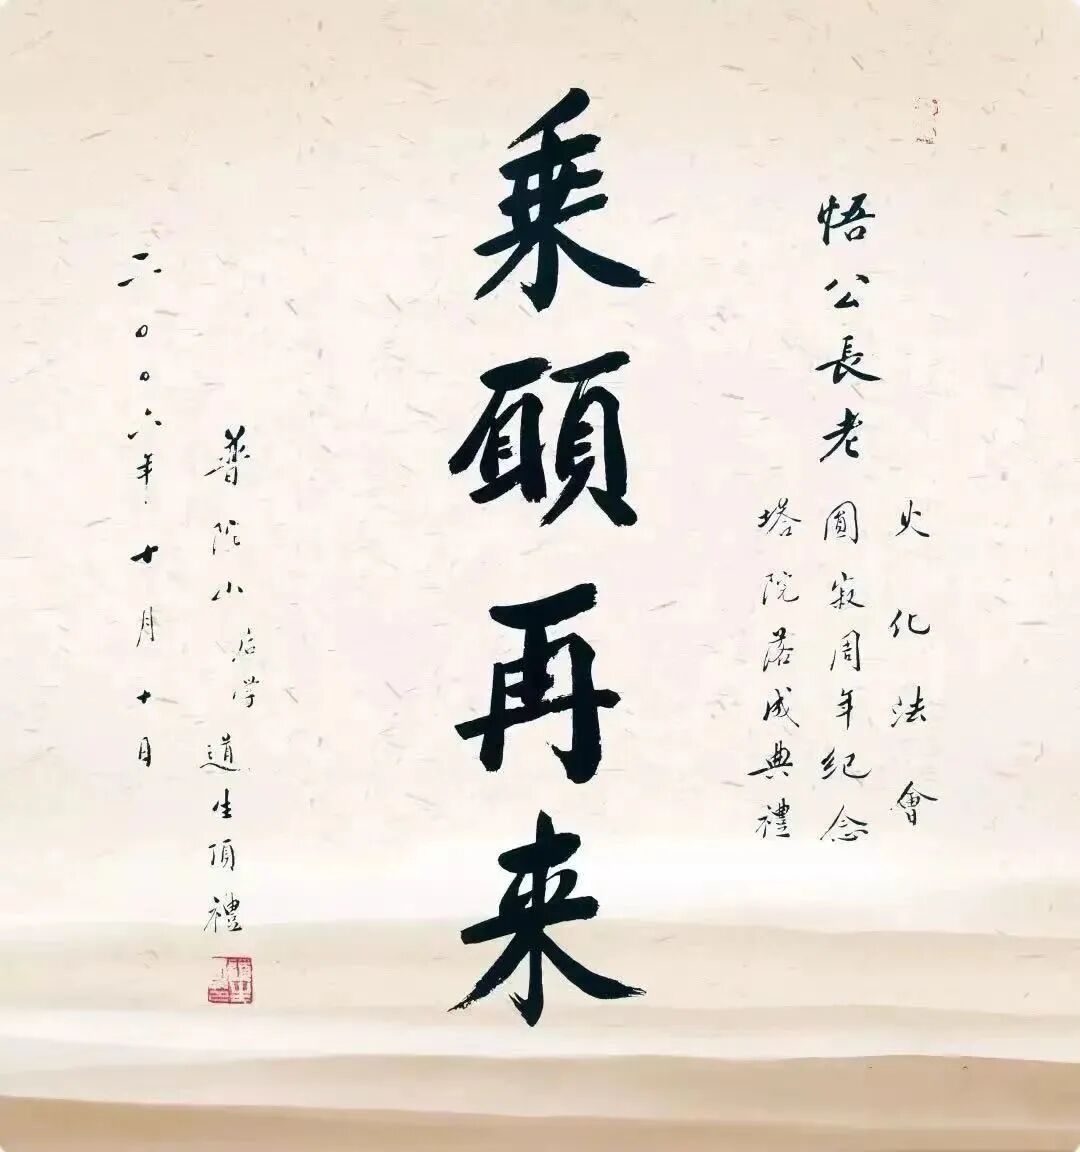 火化法會
悟公長老圓寂周年紀念
塔院落成典禮
乘願再来
普陀山后学道生頂禮
二〇〇六年十月十日